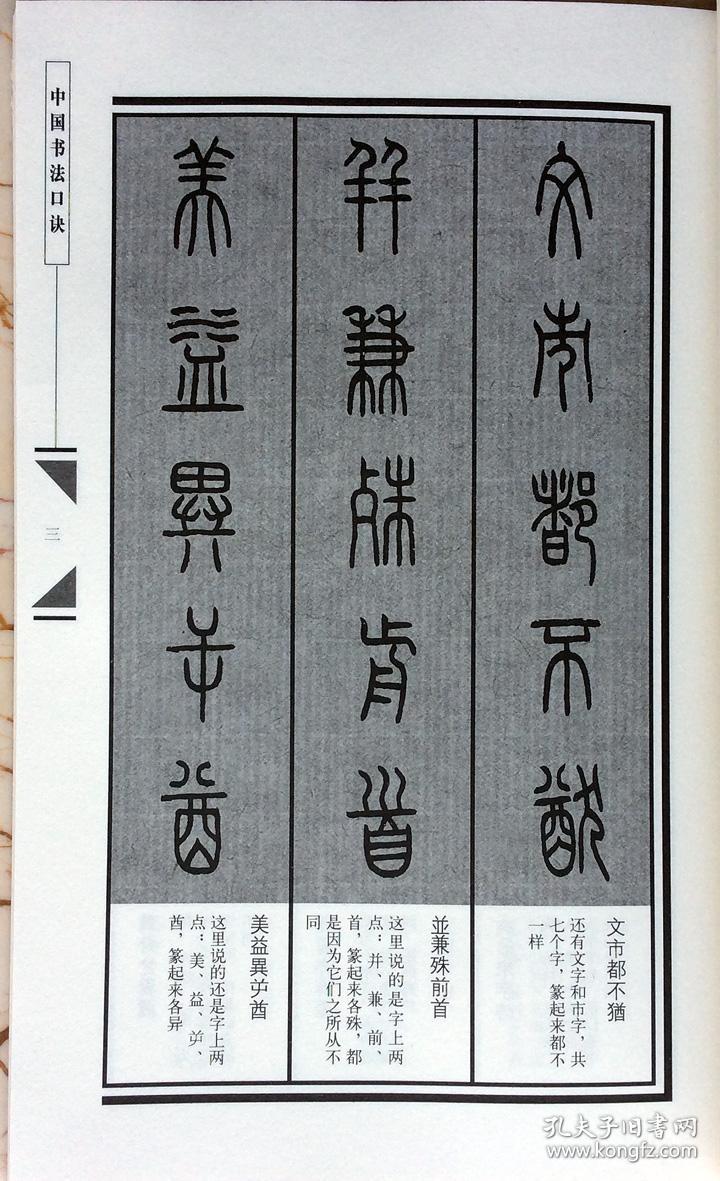 中国书法口诀
三
文市都不猶
文市都不猶
还有文字和市字，共
七个字，篆起来都不
一样
并兼殊前首
並兼殊前首
这里说的是字上两
点：并、兼、前、
首，篆起来各殊，都
是因为它们之所从不
同
美益異屰酋
美益異屰酋
这里说的还是字上两
点：美、益、屰、
酋，篆起来各异
孔夫子旧书网
www.kongfz.com